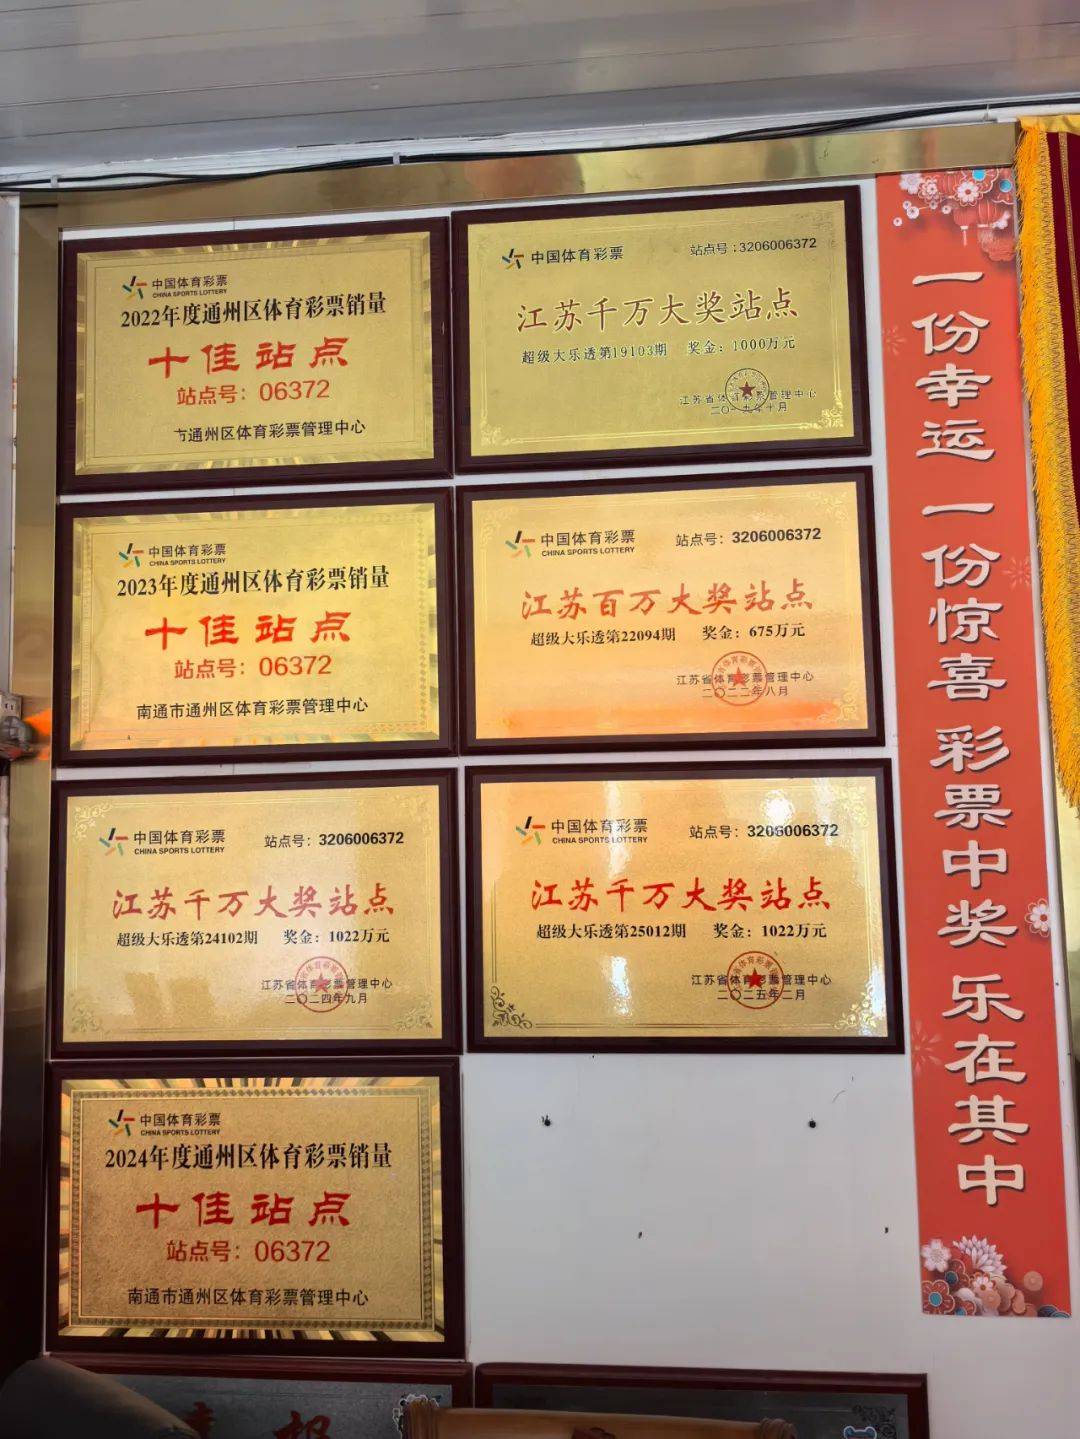 中国体育彩票
CHINA SPORTS LOTTERY
2022年度通州区体育彩票销量
十佳站点
站点号：06372
市通州区体育彩票管理中心
中国体育彩票
站点号：3206006372
江苏千万大奖站点
超级大乐透第19103期 奖金：1000万元
江苏省体育彩票管理中心
二〇一九年十月
中国体育彩票
CHINA SPORTS LOTTERY
2023年度通州区体育彩票销量
十佳站点
站点号：06372
南通市通州区体育彩票管理中心
中国体育彩票
CHINA SPORTS LOTTERY
站点号：3206006372
江苏百万大奖站点
超级大乐透第22094期 奖金：675万元
江苏省体育彩票管理中心
二〇二二年八月
中国体育彩票
CHINA SPORTS LOTTERY
站点号：3206006372
江苏千万大奖站点
超级大乐透第24102期 奖金：1022万元
江苏省体育彩票管理中心
二〇二四年九月
中国体育彩票
CHINA SPORTS LOTTERY
站点号：3206006372
江苏千万大奖站点
超级大乐透第25012期 奖金：1022万元
江苏省体育彩票管理中心
二〇二五年二月
中国体育彩票
CHINA SPORTS LOTTERY
2024年度通州区体育彩票销量
十佳站点
站点号：06372
南通市通州区体育彩票管理中心
一份幸运 一份惊喜 彩票中奖 乐在其中